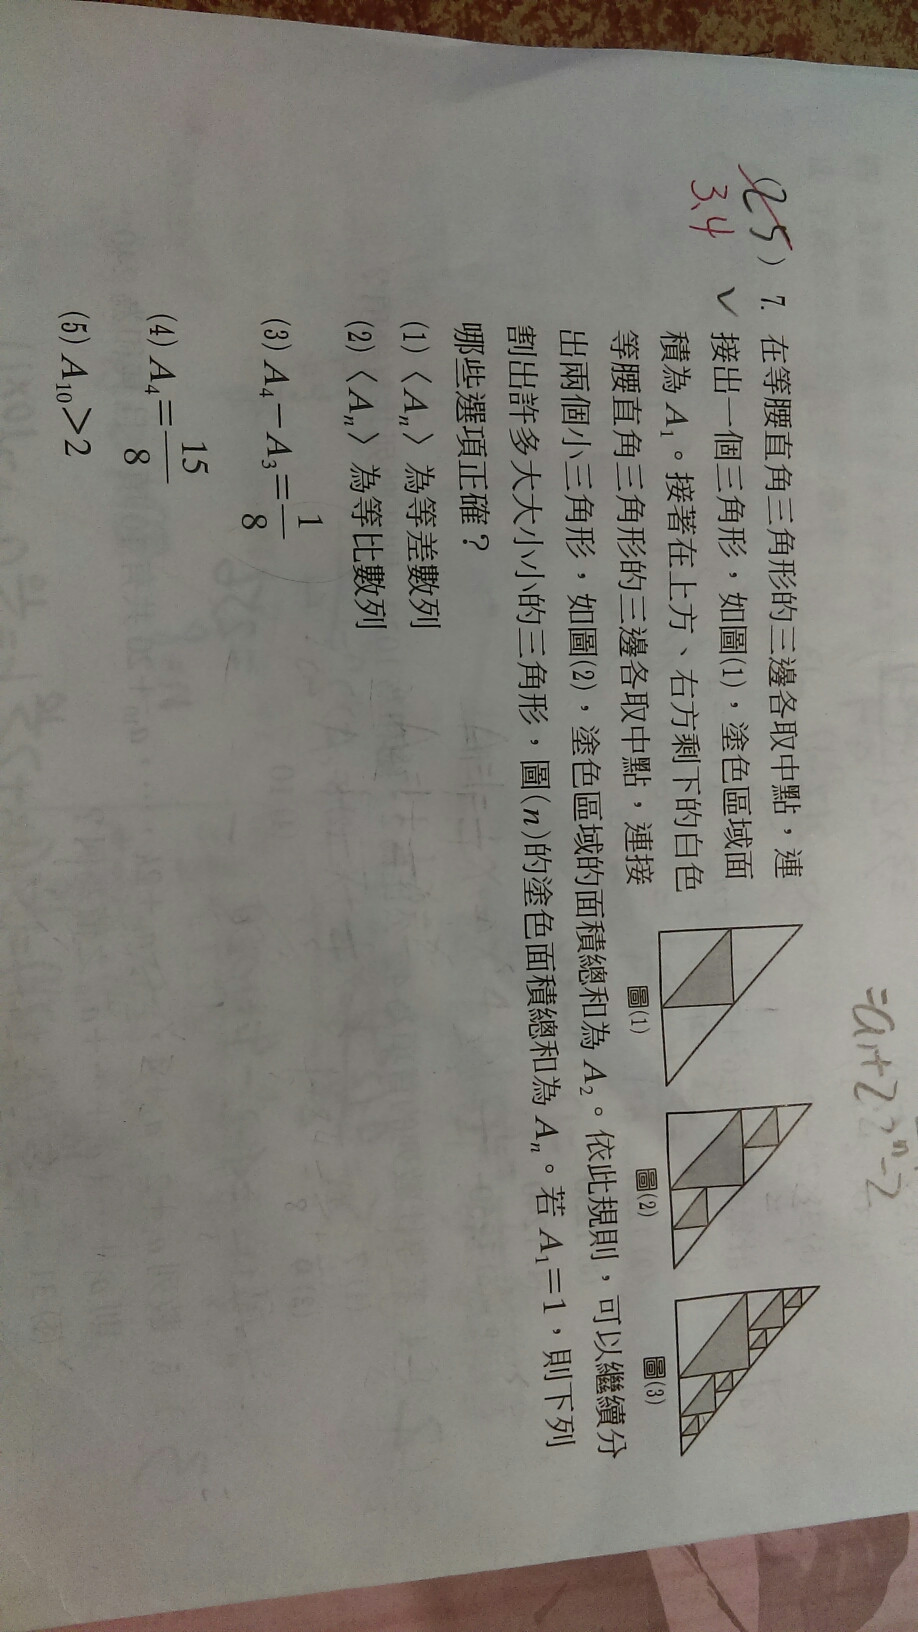 =a₁+2·2ⁿ-2
(25) 7. 在等腰直角三角形的三邊各取中點，連
3.4 ✓ 接出一個三角形，如圖(1)，塗色區域面
積為 A₁。接著在上方、右方剩下的白色
等腰直角三角形的三邊各取中點，連接
出兩個小三角形，如圖(2)，塗色區域的面積總和為 A₂。依此規則，可以繼續分
割出許多大大小小的三角形，圖(n)的塗色面積總和為 Aₙ。若 A₁=1，則下列
哪些選項正確？
圖(1) 圖(2) 圖(3)
(1)〈Aₙ〉為等差數列
(2)〈Aₙ〉為等比數列
(3) A₄－A₃＝1/8
(4) A₄＝15/8
(5) A₁₀＞2